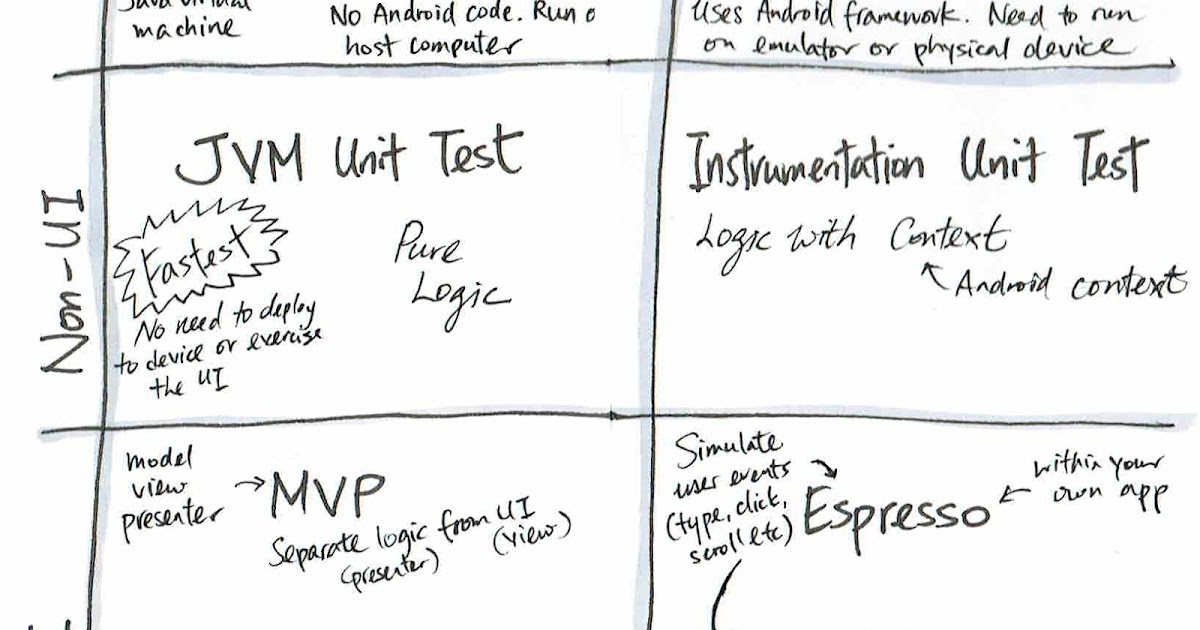 Java virtual
machine
No Android code. Run o
host computer
Uses Android framework. Need to run
on emulator or physical device
Non-UI
JVM Unit Test
Fastest
No need to deploy
to device or exercise
the UI
Pure
Logic
Instrumentation Unit Test
Logic with Context
Android context
model
view
presenter
MVP
Separate logic from UI
(presenter)
(view)
Simulate
user events
(type, click,
scroll etc)
Espresso
within your
own app